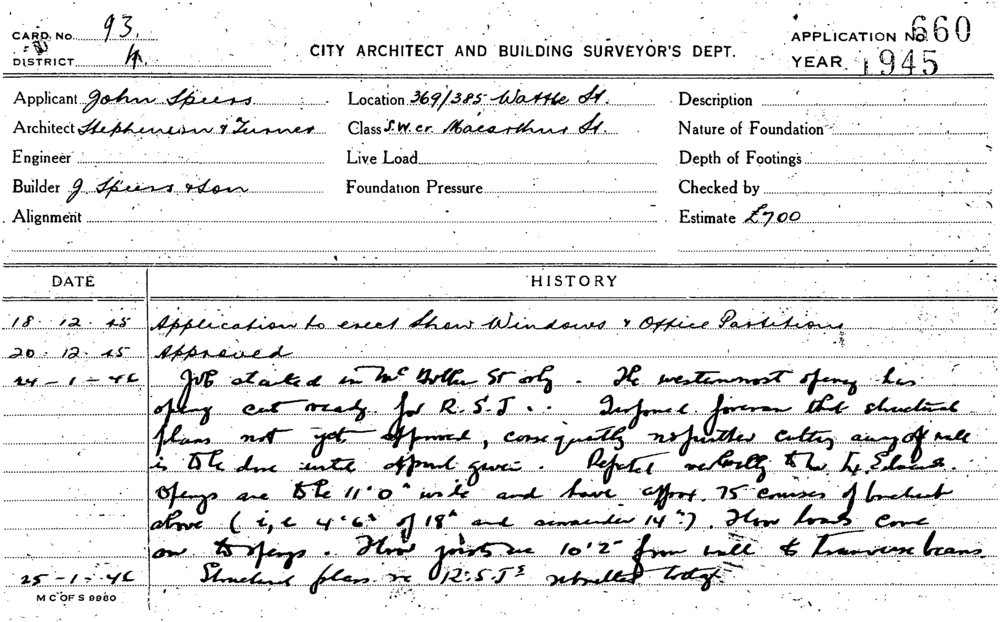 CARD No. 93.
DISTRICT
CITY ARCHITECT AND BUILDING SURVEYOR'S DEPT.
APPLICATION No. 660
YEAR 1945
Applicant John Speers
Location 369/385 Wattle St.
Description
Architect Stephenson & Turner
Class S.W. cr. Macarthur St.
Nature of Foundation
Engineer
Live Load
Depth of Footings
Builder J. Speers & Son
Foundation Pressure
Checked by
Alignment
Estimate £700
DATE
HISTORY
18. 12. 45 Application to erect Show Windows & Office Partitions
20. 12. 45 Approved
24-1-46 Job started in St only. The westernmost opening has
opening cut ready for R.S.J. Informed foreman that structural
plans not yet approved, consequently no further cutting away of wall
is to be done until approval given. Reported verbally to
Openings are to be 11'0" wide and have approx. 75 courses of brickwork
above (i.e 4'6" of 18" and remainder 14"). Floor loads come
on to openings. Floor joists are 10'2" from wall to transverse beams.
25-1-46 Structural plans re R.S.Js submitted today
M C OF S 9980